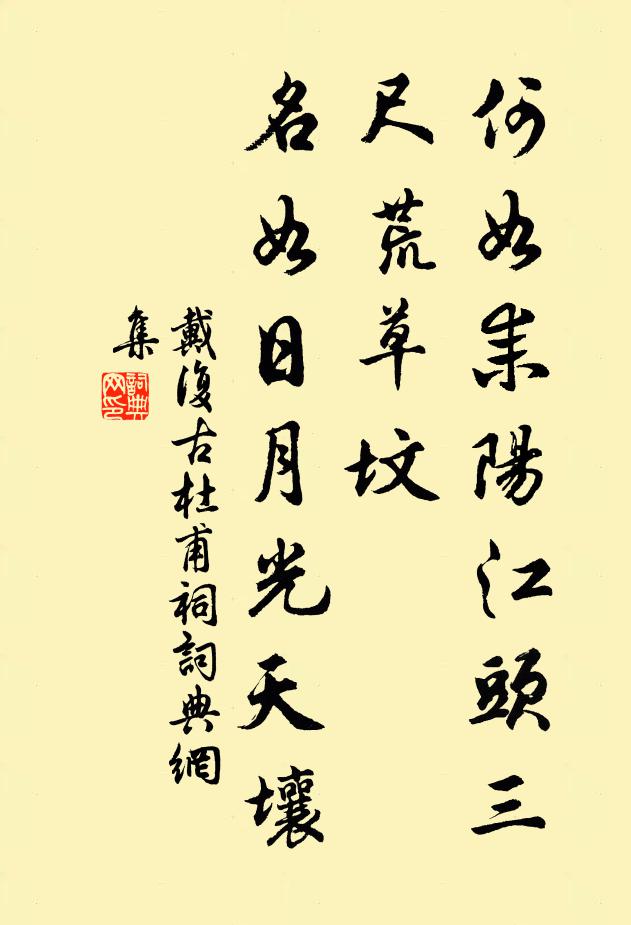 何如耒陽江頭三
尺荒草墳
名如日月光天壤
戴復古杜甫祠詞典網
集
詞典
网印